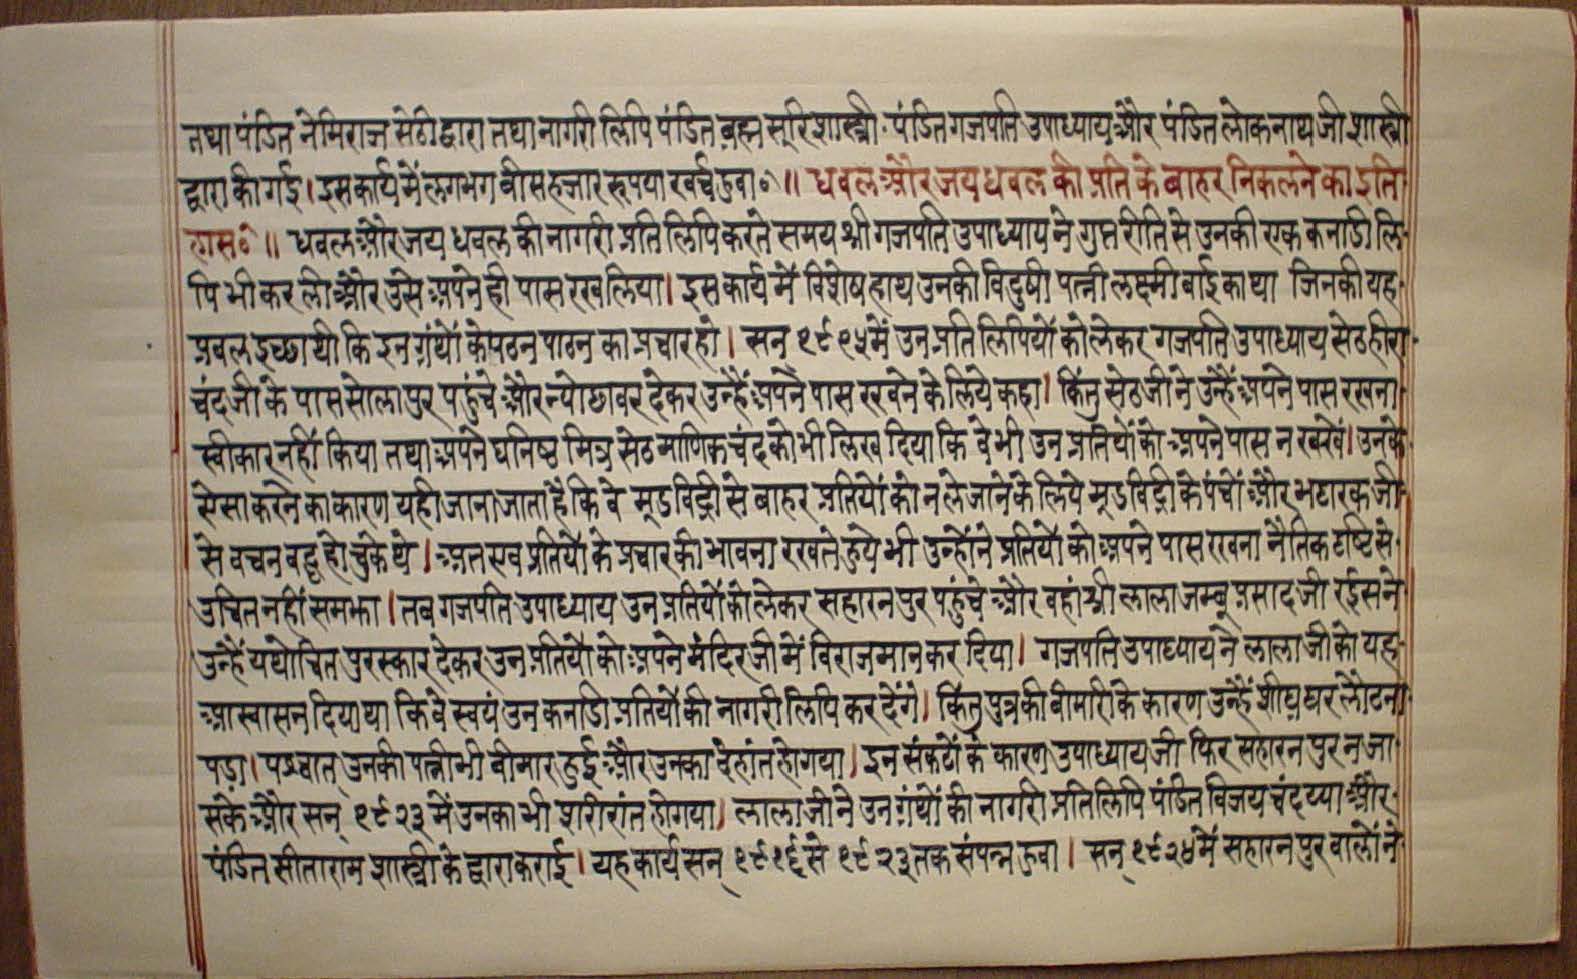 तथा पंडित नेमिराज सेठी द्वारा तथा नागरी लिपि पंडित ब्रह्म सूरि शास्त्री. पंडित गजपति उपाध्याय और पंडित लोकनाथ जी शास्त्री
द्वारा की गई। इस कार्य में लगभग बीस हजार रूपया खर्च हुवा॰॥ धवल और जय धवल की प्रति के बाहर निकलने का इति
हास॰॥ धवल और जय धवल की नागरी प्रति लिपि करते समय श्री गजपति उपाध्याय ने गुप्त रीति से उनकी एक कनाडी लि
पि भी कर ली और उसे अपने ही पास रख लिया। इस कार्य में विशेष हाथ उनकी विदुषी पत्नी लक्ष्मी बाई का था जिनकी यह
प्रबल इच्छा थी कि इन ग्रंथों के पठन पाठन का प्रचार हो। सन १९१५ में उन प्रति लिपियों को लेकर गजपति उपाध्याय सेठ हीरा
चंद जी के पास सोलापुर पहुंचे और न्योछावर देकर उन्हैं अपने पास रखने के लिये कहा। किंतु सेठ जी ने उन्हैं अपने पास रखना
स्वीकार नहीं किया तथा अपने घनिष्ठ मित्र सेठ माणिक चंद को भी लिख दिया कि वे भी उन प्रतियों को अपने पास न रक्खें। उनके
सेसा करने का कारण यही जाना जाता है कि वे मूडविद्री से बाहर प्रतियों को न ले जाने के लिये मूडविद्री के पंचों और भट्टारक जी
से वचन बद्ध हो चुके थे। अत स्व प्रतियों के प्रचार की भावना रखते हुये भी उन्होंने प्रतियों को अपने पास रखना नैतिक दृष्टि से
उचित नहीं समझा। तब गजपति उपाध्याय उन प्रतियों को लेकर सहारनपुर पहुंचे और वहां श्री लाला जम्बू प्रसाद जी रईस ने
उन्हैं यथोचित पुरस्कार देकर उन प्रतियों को अपने मंदिर जी में विराजमान कर दिया। गजपति उपाध्याय ने लाला जी को यह
आस्वासन दिया था कि वे स्वयं उन कनाडी प्रतियों की नागरी लिपि कर देंगे। किंतु पुत्र की बीमारी के कारण उन्हैं शीघ्र घर लौटना
पड़ा। पश्चात् उनकी पत्नी भी बीमार हुई और उनका देहांत हो गया। इन संकटों के कारण उपाध्याय जी फिर सहारनपुर न जा
सके और सन् १९२३ में उनका भी शरीरांत हो गया। लाला जी ने उन ग्रंथों की नागरी प्रति लिपि पंडित विजय चंद्रय्या और
पंडित सीताराम शास्त्री के द्वारा कराई। यह कार्य सन् १९१६ से १९२३ तक संपन्न हुवा। सन् १९२४ में सहारनपुर वालों ने